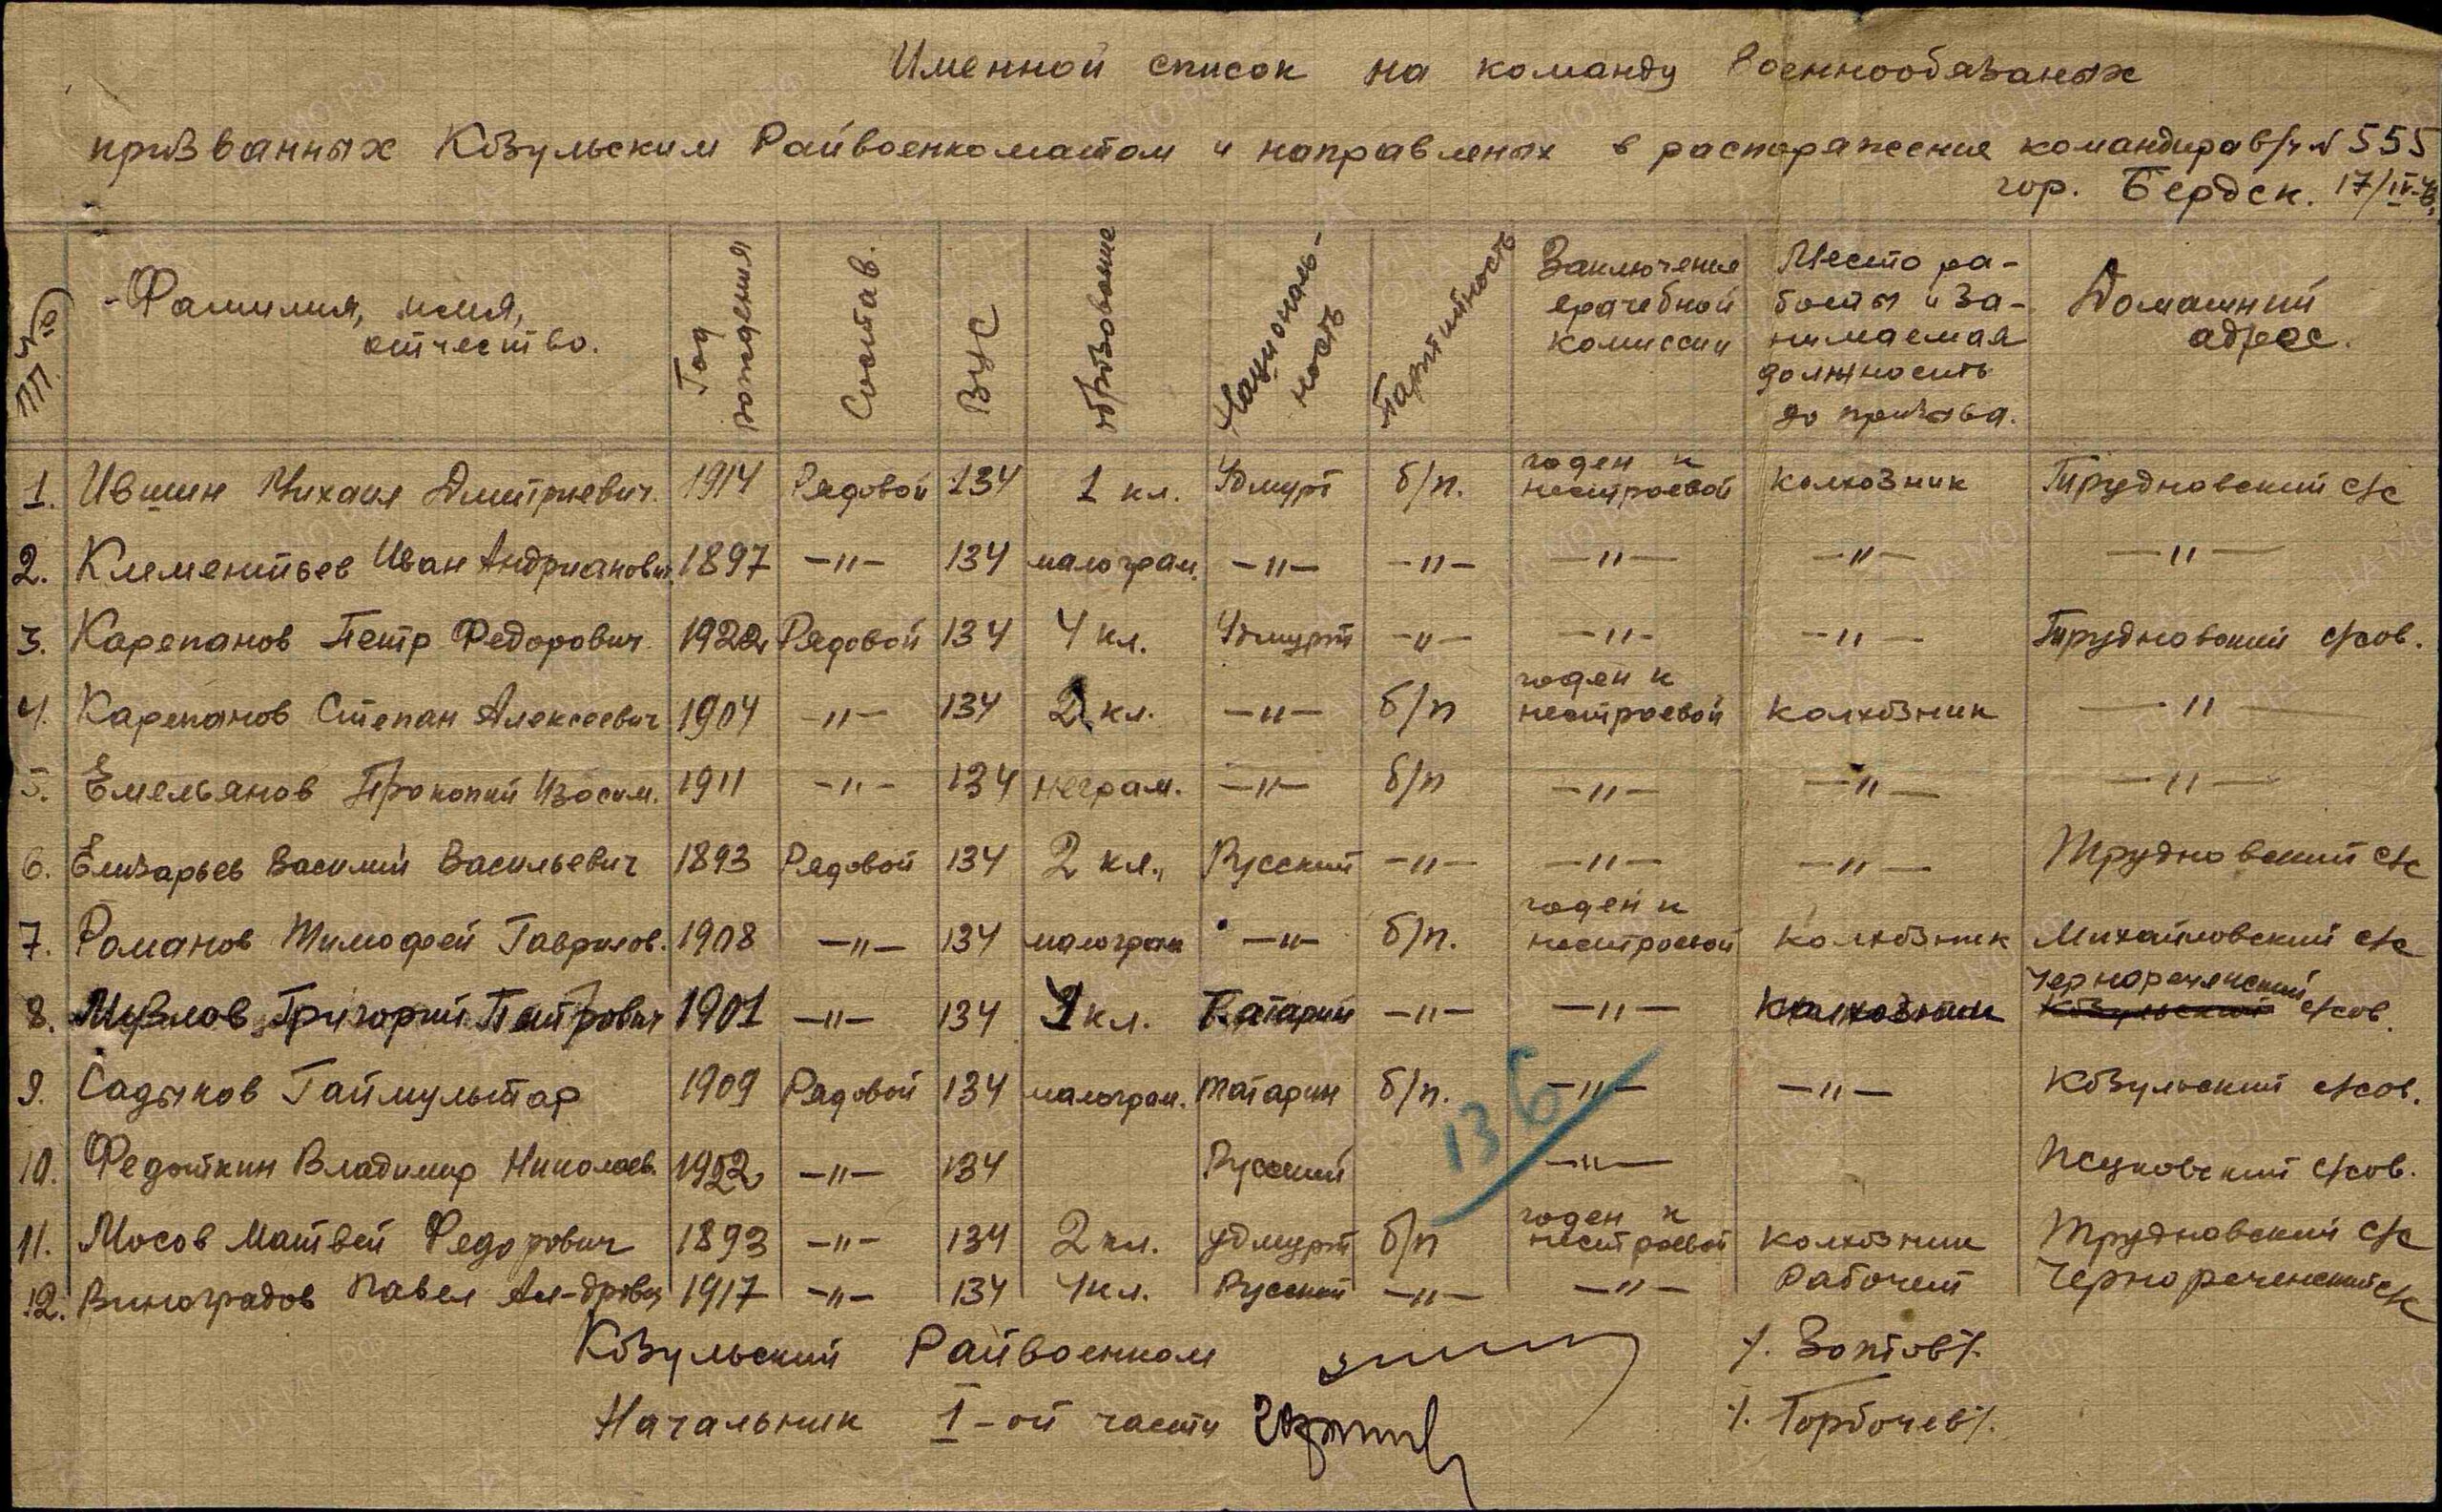 Именной список на команду военнообязаных
призванных Козульским Райвоенкоматом и направленых в распоряжение командира в/ч № 555
гор. Бердск. 17/IV-43.
№ ПП Фамилия, имя, отчество. Год рождения Состав. ВУС образование Национальность Партийность Заключение врачебной комиссии Место работы и занимаемая должность до призыва. Домашний адрес.
1. Ившин Михаил Дмитриевич. 1914 Рядовой 134 1 кл. Удмурт б/п. годен к нестроевой колхозник Трудновский с/с
2. Клементьев Иван Андрианович 1897 —"— 134 малограм. —"— —"— —"— —"— —"—
3. Карепанов Петр Федорович 1922 Рядовой 134 4 кл. Удмурт —"— —"— —"— Трудновский с/сов.
4. Карепанов Степан Алексеевич 1904 —"— 134 2 кл. —"— б/п годен к нестроевой колхозник —"—
5. Емельянов Прокопий Изосим. 1911 —"— 134 неграм. —"— б/п —"— —"— —"—
6. Елизарьев Василий Васильевич 1893 Рядовой 134 2 кл., Русский —"— —"— —"— Трудновский с/с
7. Романов Тимофей Гаврилов. 1908 —"— 134 малограм —"— б/п. годен к нестроевой колхозник Михайловский с/с
8. Григорий Петрович 1901 —"— 134 1 кл. Татарин —"— —"— колхозник Чернореченский Козульский с/сов.
9. Садыков Гаймультар 1909 Рядовой 134 малограм. татарин б/п. —"— —"— Козульский с/сов.
10. Федоткин Владимир Николаев. 1922 —"— 134 Русский —"— с/сов.
136
11. Мосов Матвей Федорович 1893 —"— 134 2 кл. удмурт б/п годен к нестроевой колхозник Трудновский с/с
12. Виноградов Павел Ал-дрович 1917 —"— 134 4 кл. Русский —"— —"— Рабочий Чернореченский с/с
Козульский Райвоенком /. Зоптов/.
Начальник I-ой части /. Горбочев/.